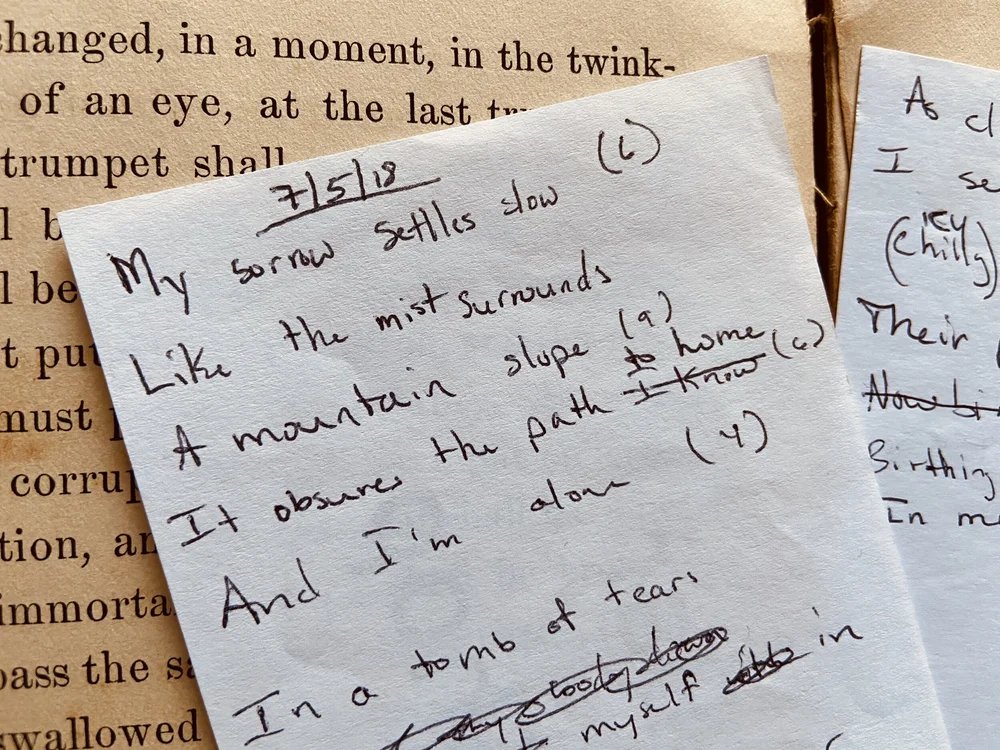 changed, in a moment, in the twink-
of an eye, at the last
trumpet shall
be
must
corrup
tion, an
immorta
pass the
swallowed
7/5/18
My sorrow settles slow (6)
Like the mist surrounds
A mountain slope (9)
It obsures the path I know to home (6)
And I'm alone (4)
In a tomb of tears
I myself in
As cl
I se
Icy
(Chilly)
Their
Now bi
Birthing
In m